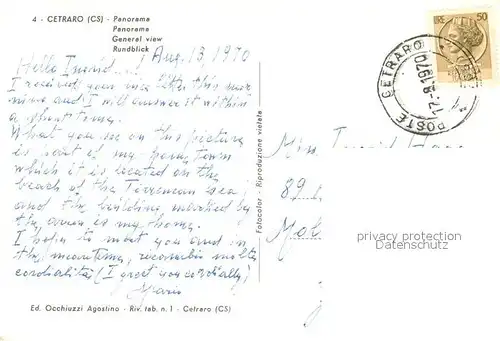 4 - CETRARO (CS) - Panorama
Panorama
General view
Rundblick
Aug. 13, 1970
Hello Ingrid...!
I received your nice letter this mor-
ning and I will answer it within
a short time.
What you see on this picture
is part of my home town
which it is located on the
beach of the Tirrenian sea;
and the building marked by
the arrow is my home.
I hope to meet you and in
the meantime, ricambio molte
cordialità! (I greet you cordially)
Mario
Ed. Occhiuzzi Agostino - Riv. tab. n. 1 - Cetraro (CS)
Fotocolor - Riproduzione vietata
LIRE 50
POSTE CETRARO
17-8.1970
Miss Ingrid
89
Mol
privacy protection
Datenschutz